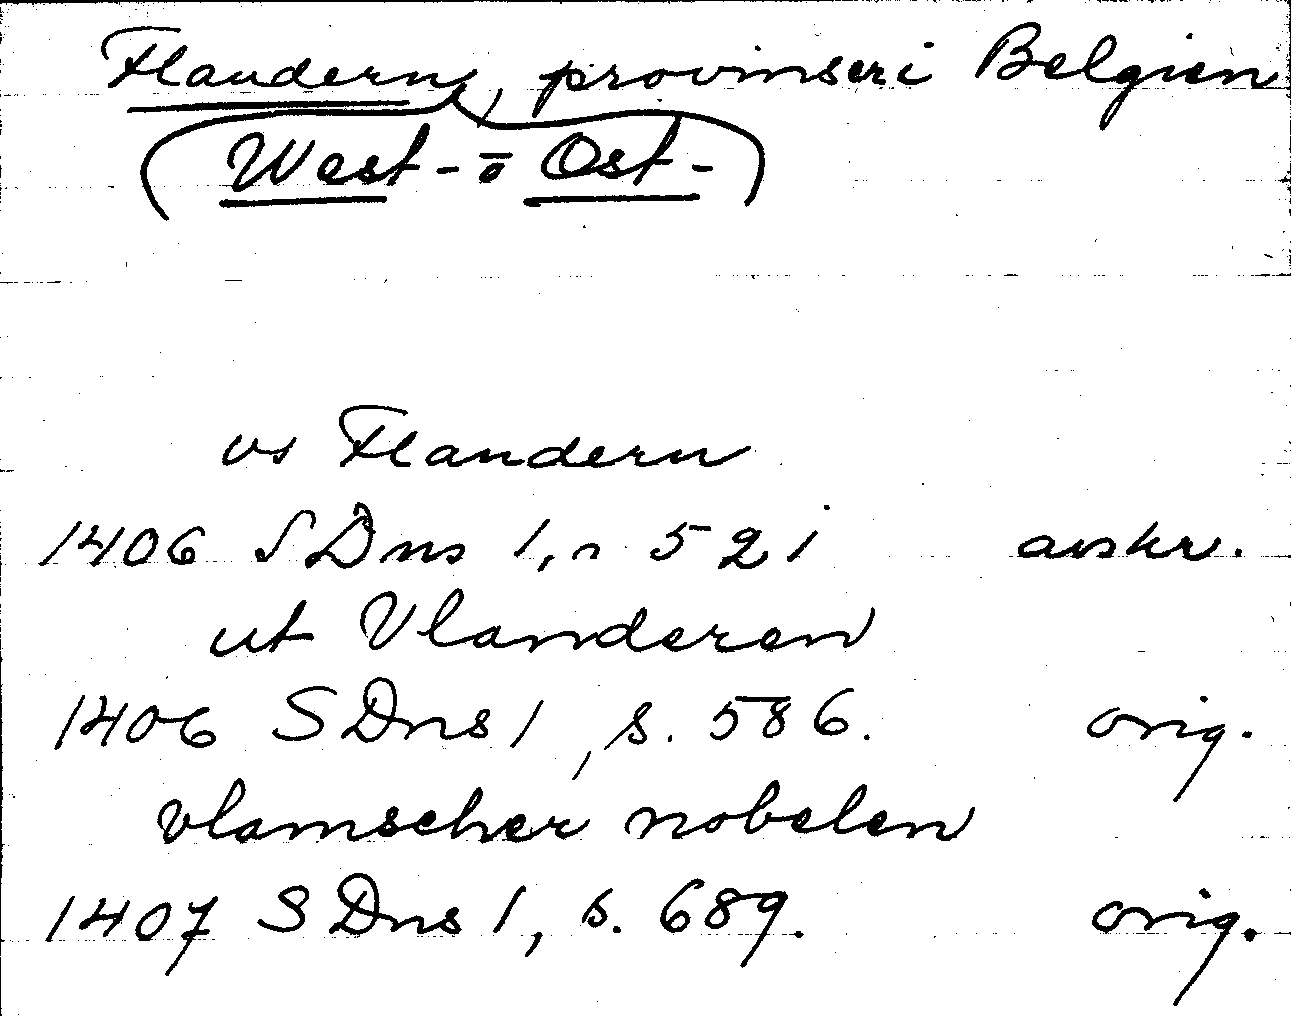 Flandern, provinser i Belgien
(West- o Ost-)
vs Flandern
1406 SDns 1, s 521 avskr.
ut Vlanderen
1406 SDns 1, s. 586. orig.
vlamscher nobelen
1407 SDns 1, s. 689. orig.